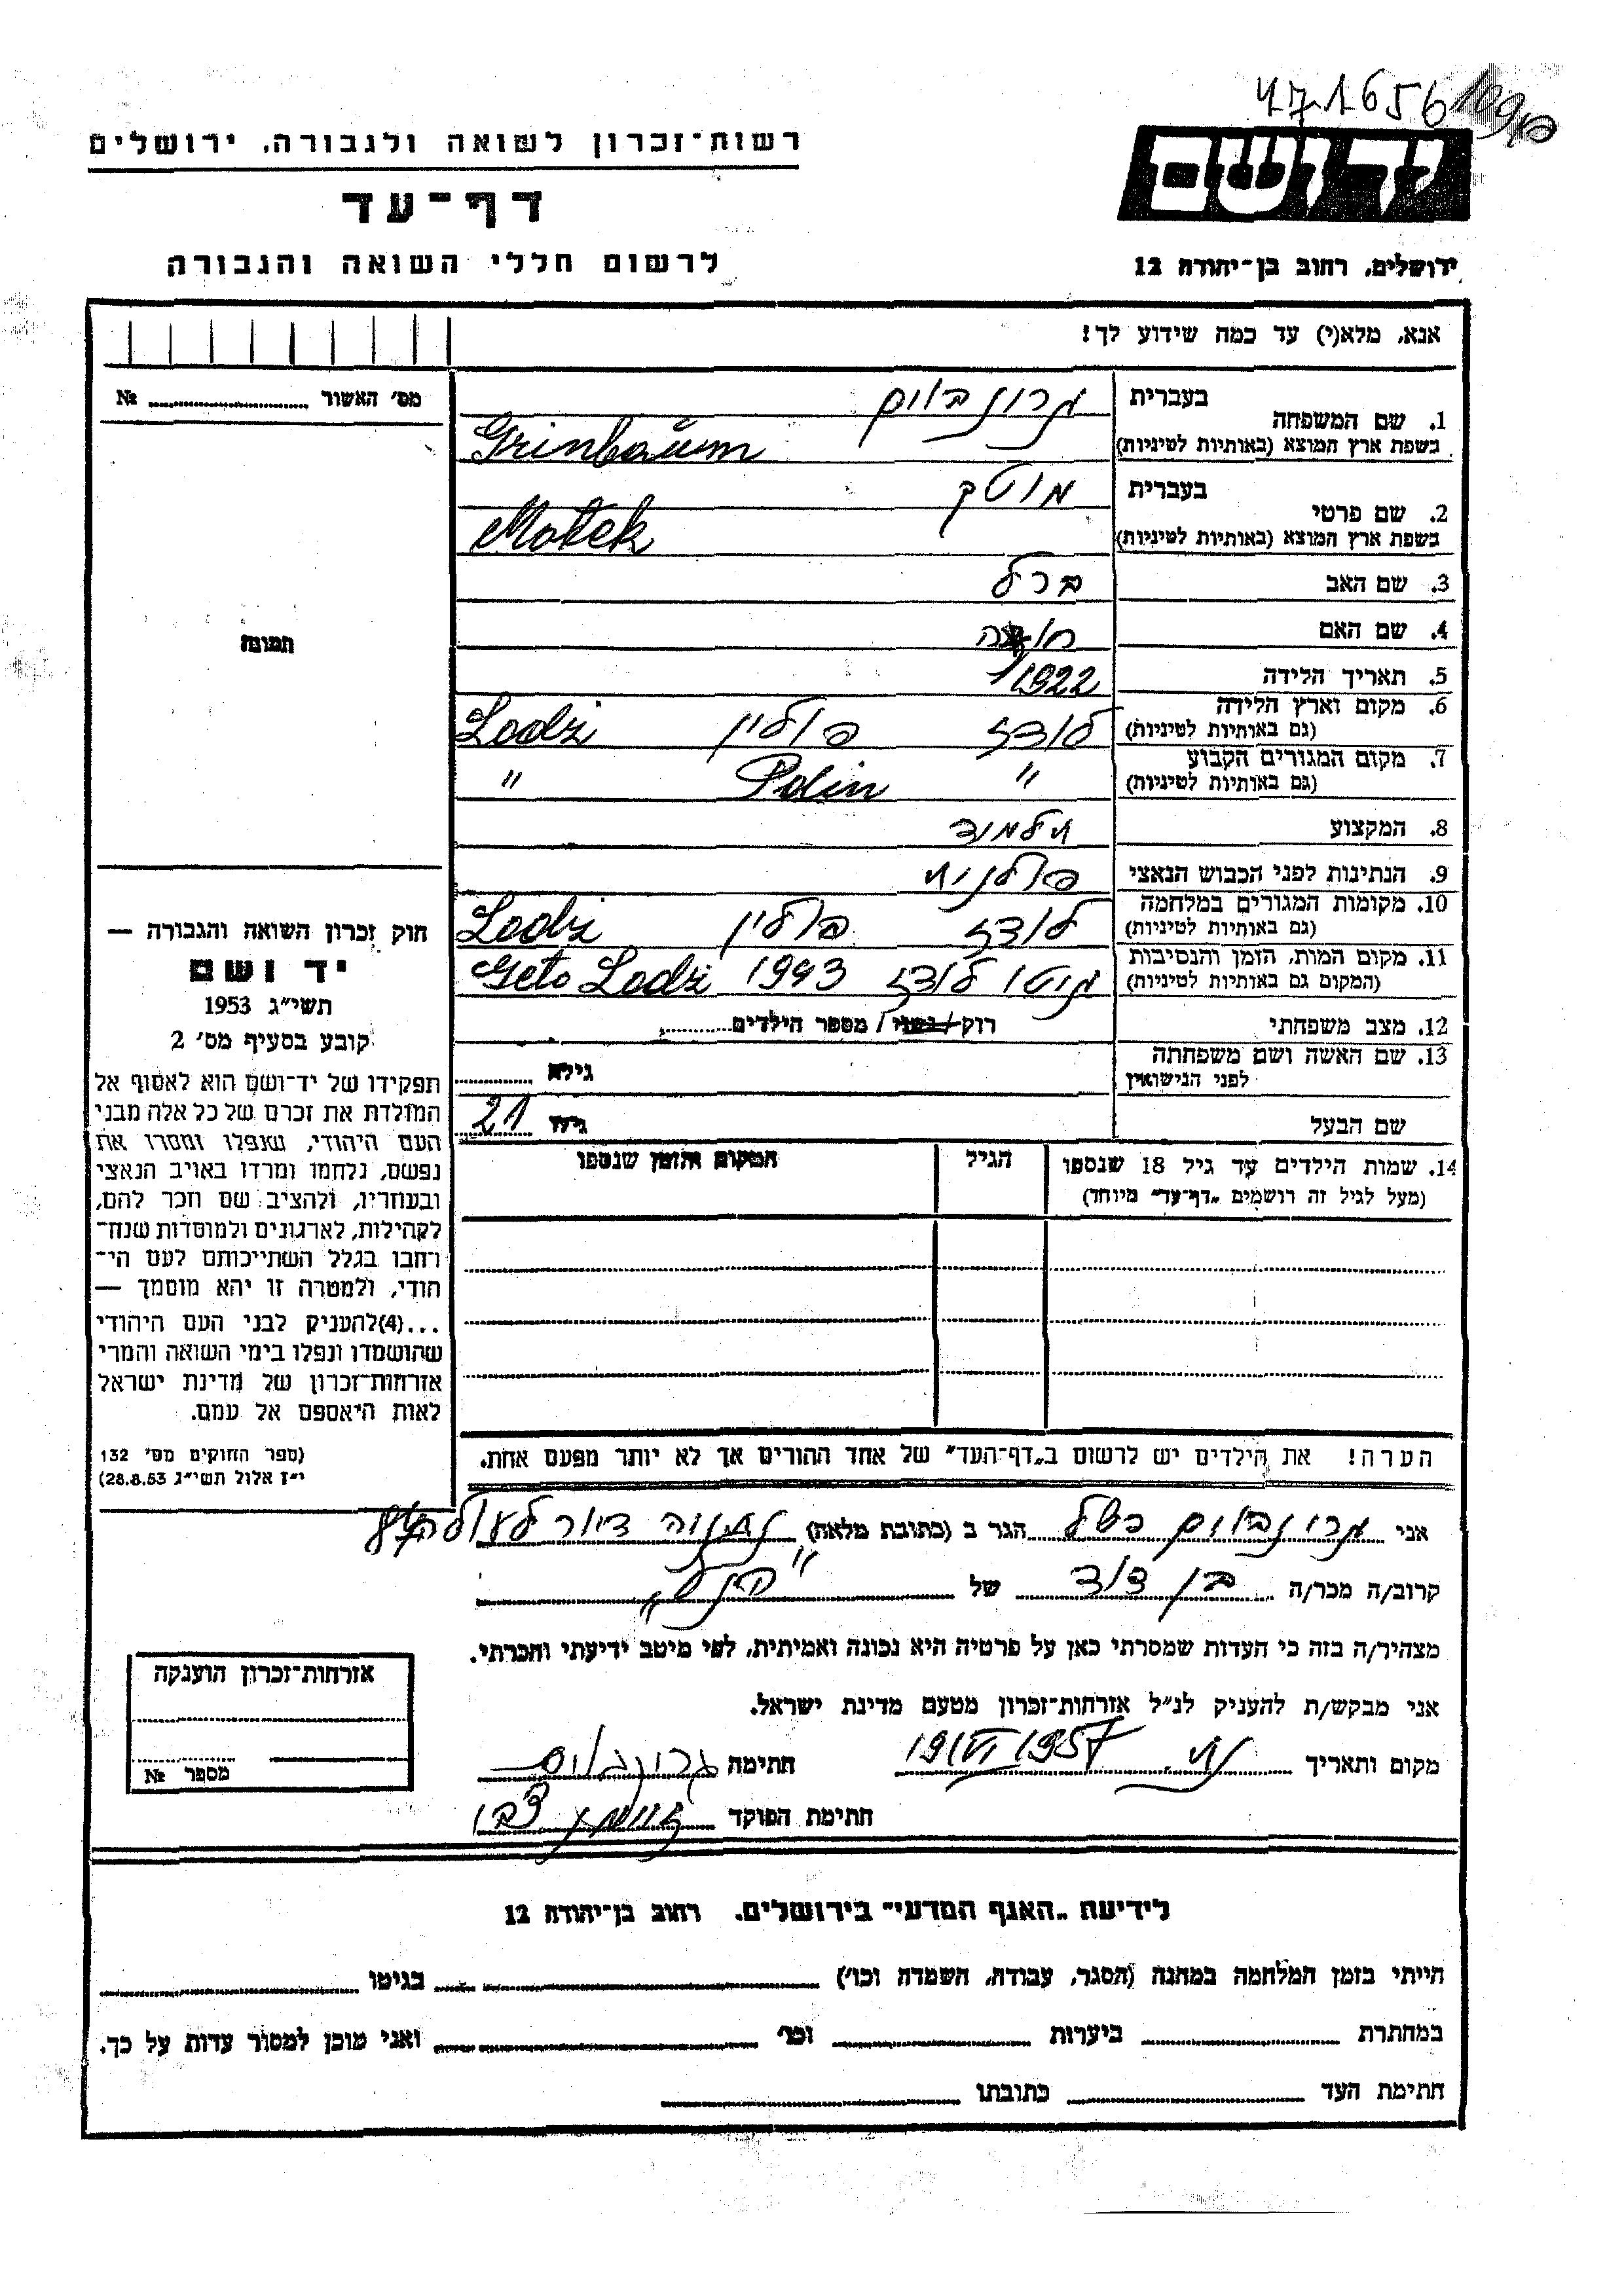 471656
רשות-זכרון לשואה ולגבורה, ירושלים
דף-עד
לרשום חללי השואה והגבורה
יד ושם
ירושלים, רחוב בן-יהודה 12
אנא, מלא(י) עד כמה שידוע לך!
מס׳ האשור № 
1. שם המשפחה בעברית גרונבוים
בשפת ארץ המוצא (באותיות לטיניות) Grinbaum
2. שם פרטי בעברית מוטק
בשפת ארץ המוצא (באותיות לטיניות) Motek
3. שם האב ברל
4. שם האם
5. תאריך הלידה 1922
6. מקום וארץ הלידה (גם באותיות לטיניות) לודז פולין Lodzi
7. מקום המגורים הקבוע (גם באותיות לטיניות) " Polin "
8. המקצוע תלמוד
9. הנתינות לפני הכבוש הנאצי פולנית
10. מקומות המגורים במלחמה (גם באותיות לטיניות) לודז פולין Lodzi
11. מקום המות, הזמן והנסיבות (המקום גם באותיות לטיניות) גיטו לודז 1943 Geto Lodzi
12. מצב משפחתי רוק / נשוי / מספר הילדים
13. שם האשה ושם משפחתה לפני הנישואין גילא
שם הבעל גילו 21
14. שמות הילדים עד גיל 18 שנספו הגיל המקום והזמן שנספו
(מעל לגיל זה רושמים „דף-עד״ מיוחד)
תמונה
חוק זכרון השואה והגבורה —
יד ושם
תשי״ג 1953
קובע בסעיף מס׳ 2
תפקידו של יד-ושם הוא לאסוף אל
המולדת את זכרם של כל אלה מבני
העם היהודי, שנפלו ומסרו את
נפשם, נלחמו ומרדו באויב הנאצי
ובעוזריו, ולהציב שם וזכר להם,
לקהילות, לארגונים ולמוסדות שנח-
רחבו בגלל השתייכותם לעם הי-
הודי, ולמטרה זו יהא מוסמך —
...(4)להעניק לבני העם היהודי
שהושמדו ונפלו בימי השואה והמרי
אזרחות-זכרון של מדינת ישראל
לאות היאספם אל עמם.
(ספר החוקים מס׳ 132
י״ז אלול תשי״ג 28.8.53)
הערה! את הילדים יש לרשום ב„דף-העד״ של אחד ההורים אך לא יותר מפעם אחת.
אני גרונבוים הגר ב (כתובת מלאה) נתניה דיור לעולה
קרוב/ה מכר/ה בן דוד של
מצהיר/ה בזה כי העדות שמסרתי כאן על פרטיה היא נכונה ואמיתית, לפי מיטב ידיעתי והכרתי.
אני מבקש/ת להעניק לנ״ל אזרחות-זכרון מטעם מדינת ישראל.
מקום ותאריך נת. 19/VI 1957 חתימה גרונבוים
חתימת הפוקד
אזרחות-זכרון הוענקה
מספר №
לידיעת „האגף המדעי״ בירושלים. רחוב בן-יהודה 12
הייתי בזמן המלחמה במחנה (הסגר, עבודה, השמדה וכו׳) בגיטו
במחתרת ביערות וכו׳ ואני מוכן למסור עדות על כך.
חתימת העד כתובתו